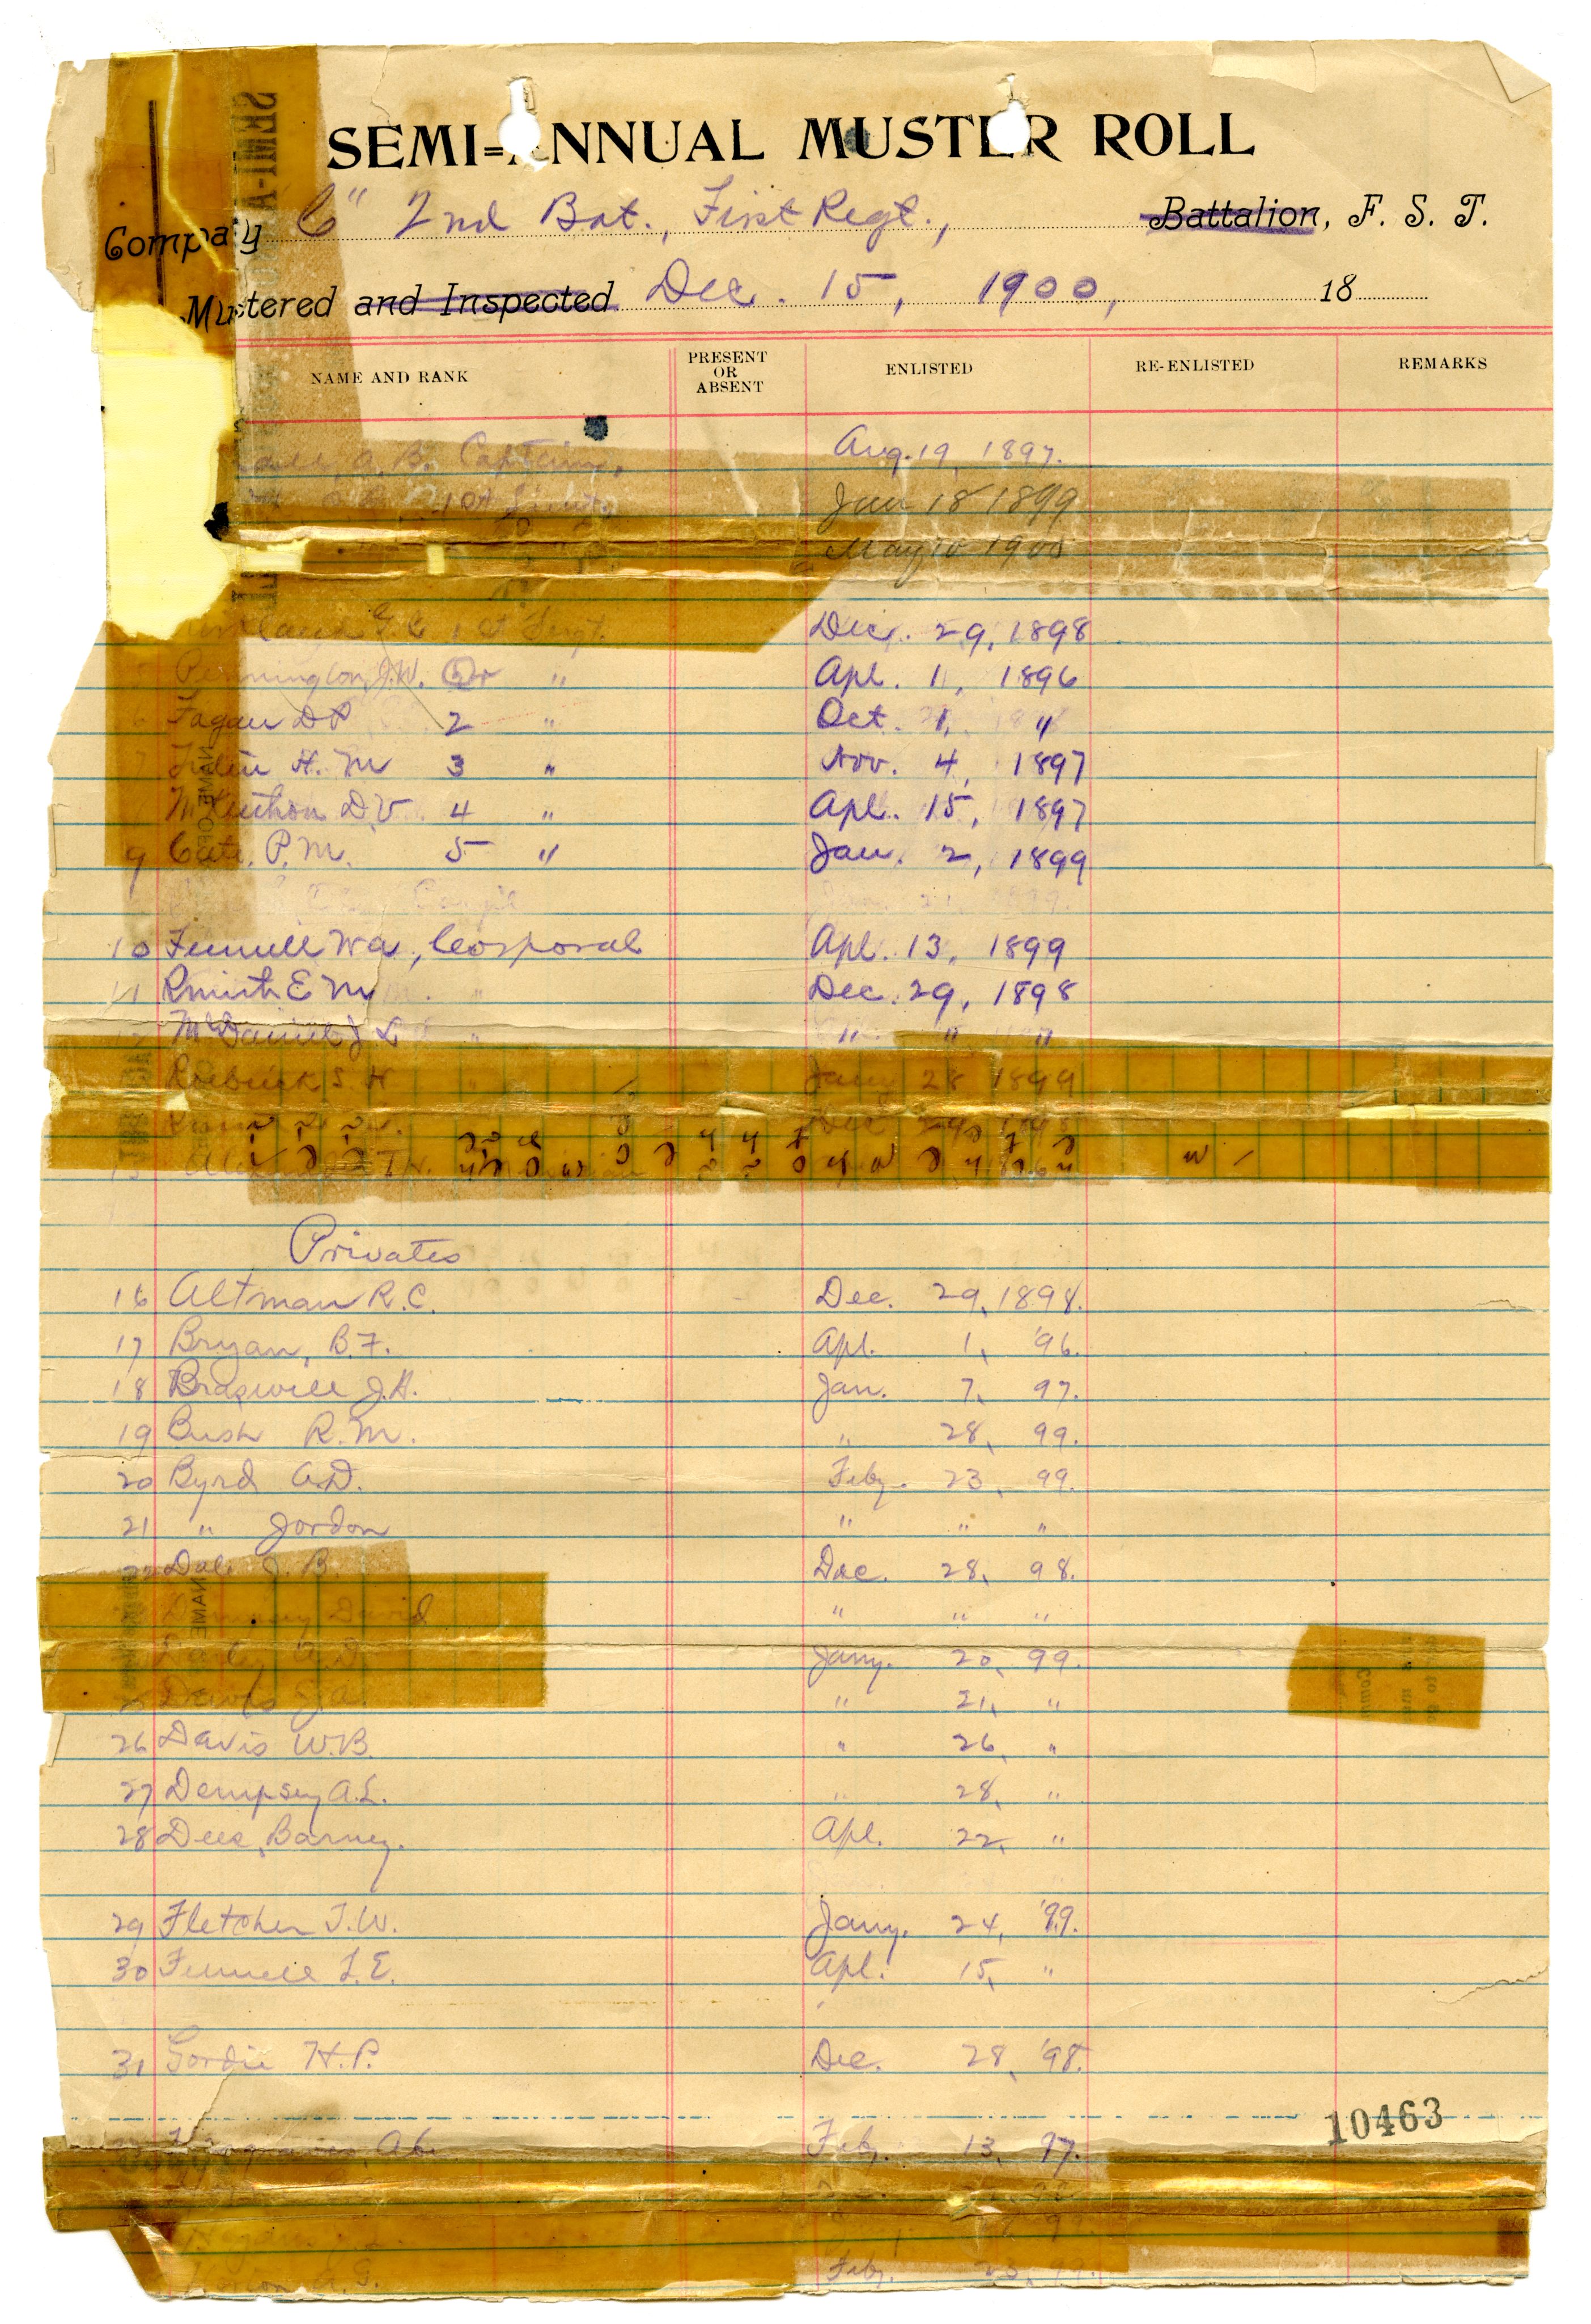 SEMI-ANNUAL MUSTER ROLL
Company C" 2nd Bat., First Regt., Battalion, F. S. T.
Mustered and Inspected Dec. 15, 1900, 18
NAME AND RANK PRESENT OR ABSENT ENLISTED RE-ENLISTED REMARKS
A. B. Captain, Aug. 19, 1897.
1st Jan 18 1899
May 10 1900
1st Sergt. Dec. 29, 1898
Pennington, J.W. " Apl. 1, 1896
Fagan D P 2 " Oct. 1, "
H. M 3 " Nov. 4, 1897
D.V. 4 " Apl. 15, 1897
9 Cate, P.M. 5 " Jan. 2, 1899
10 Fennell W a, Corporal Apl. 13, 1899
11 Smith E M " Dec. 29, 1898
McDaniel J L " " " "
Roebuck S. H. " Jany 28 1899
Dec 29
15
Privates
16 Altman R.C. Dec. 29, 1898.
17 Bryan, B.F. Apl. 1, '96.
18 Braswell J.H. Jan. 7, 97.
19 Bush R.M. " 28, 99.
20 Byrd A.D. Feby. 23, 99.
21 " Jordon " " "
22 Dale J. B. Dec. 28, 98.
David " " "
A.D. Jany. 20, 99.
25 Davis J.A. " 21, "
26 Davis W.B. " 26, "
27 Dempsey A.L. " 28, "
28 Dees, Barney. Apl. 22, "
29 Fletcher J.W. Jany. 24, '99.
30 Fennell L.E. Apl. 15, "
31 Gordie H.P. Dec. 28, '98.
10463
Abe Feby. 13, 97.
99
Feby. 23, 99.